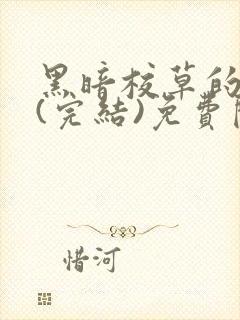 黑暗校草的
(完結)免費
惜河